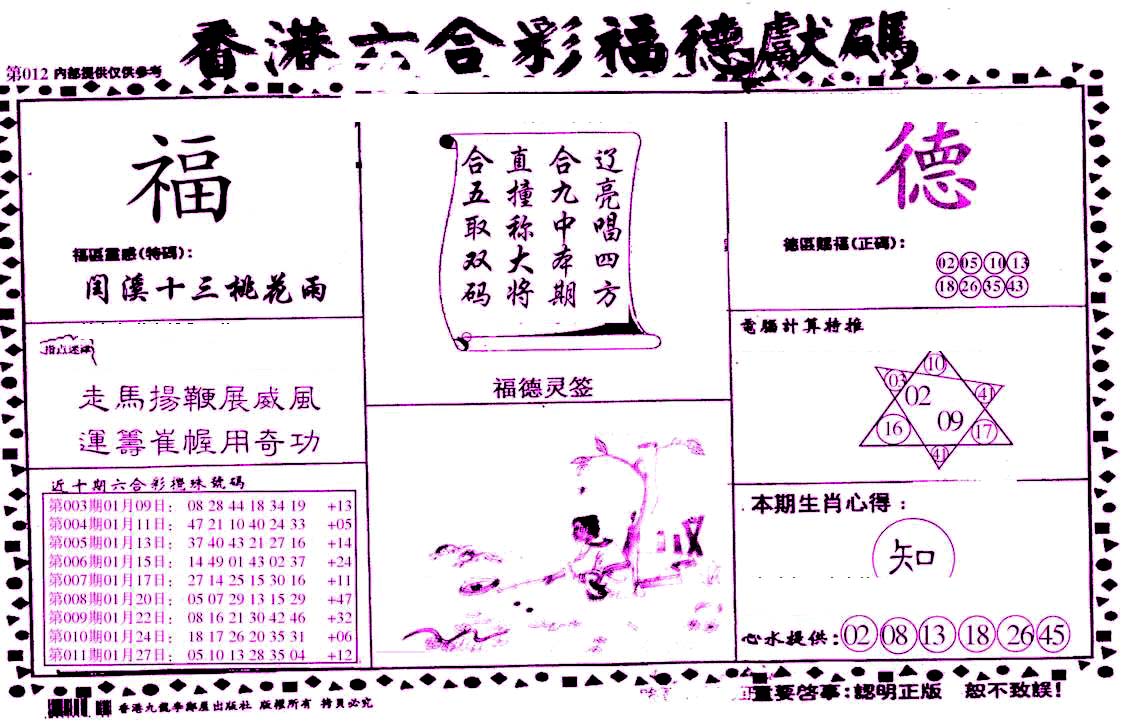 香港六合彩福德獻碼
第012 內部提供仅供参考
福
福區靈感(特碼):
閏溪十三桃花雨
指点迷津
走馬揚鞭展威風
運籌崔幄用奇功
近十期六合彩攪珠號碼
第003期01月09日: 08 28 44 18 34 19 +13
第004期01月11日: 47 21 10 40 24 33 +05
第005期01月13日: 37 40 43 21 27 16 +14
第006期01月15日: 14 49 01 43 02 37 +24
第007期01月17日: 27 14 25 15 30 16 +11
第008期01月20日: 05 07 29 13 15 29 +47
第009期01月22日: 08 16 21 30 42 46 +32
第010期01月24日: 18 17 26 20 35 31 +06
第011期01月27日: 05 10 13 28 35 04 +12
辽亮唱四方
合九中本期
直撞称大将
合五取双码
福德灵签
德
德區賜福(正碼):
02 05 10 13
18 26 35 43
電腦計算特推
10
03 41
02
09
16 17
41
本期生肖心得:
知
心水提供: 02 08 13 18 26 45
香港九龍李鄭屋出版社 版權所有 拷貝必究
重要啓事:認明正版 恕不致誤!